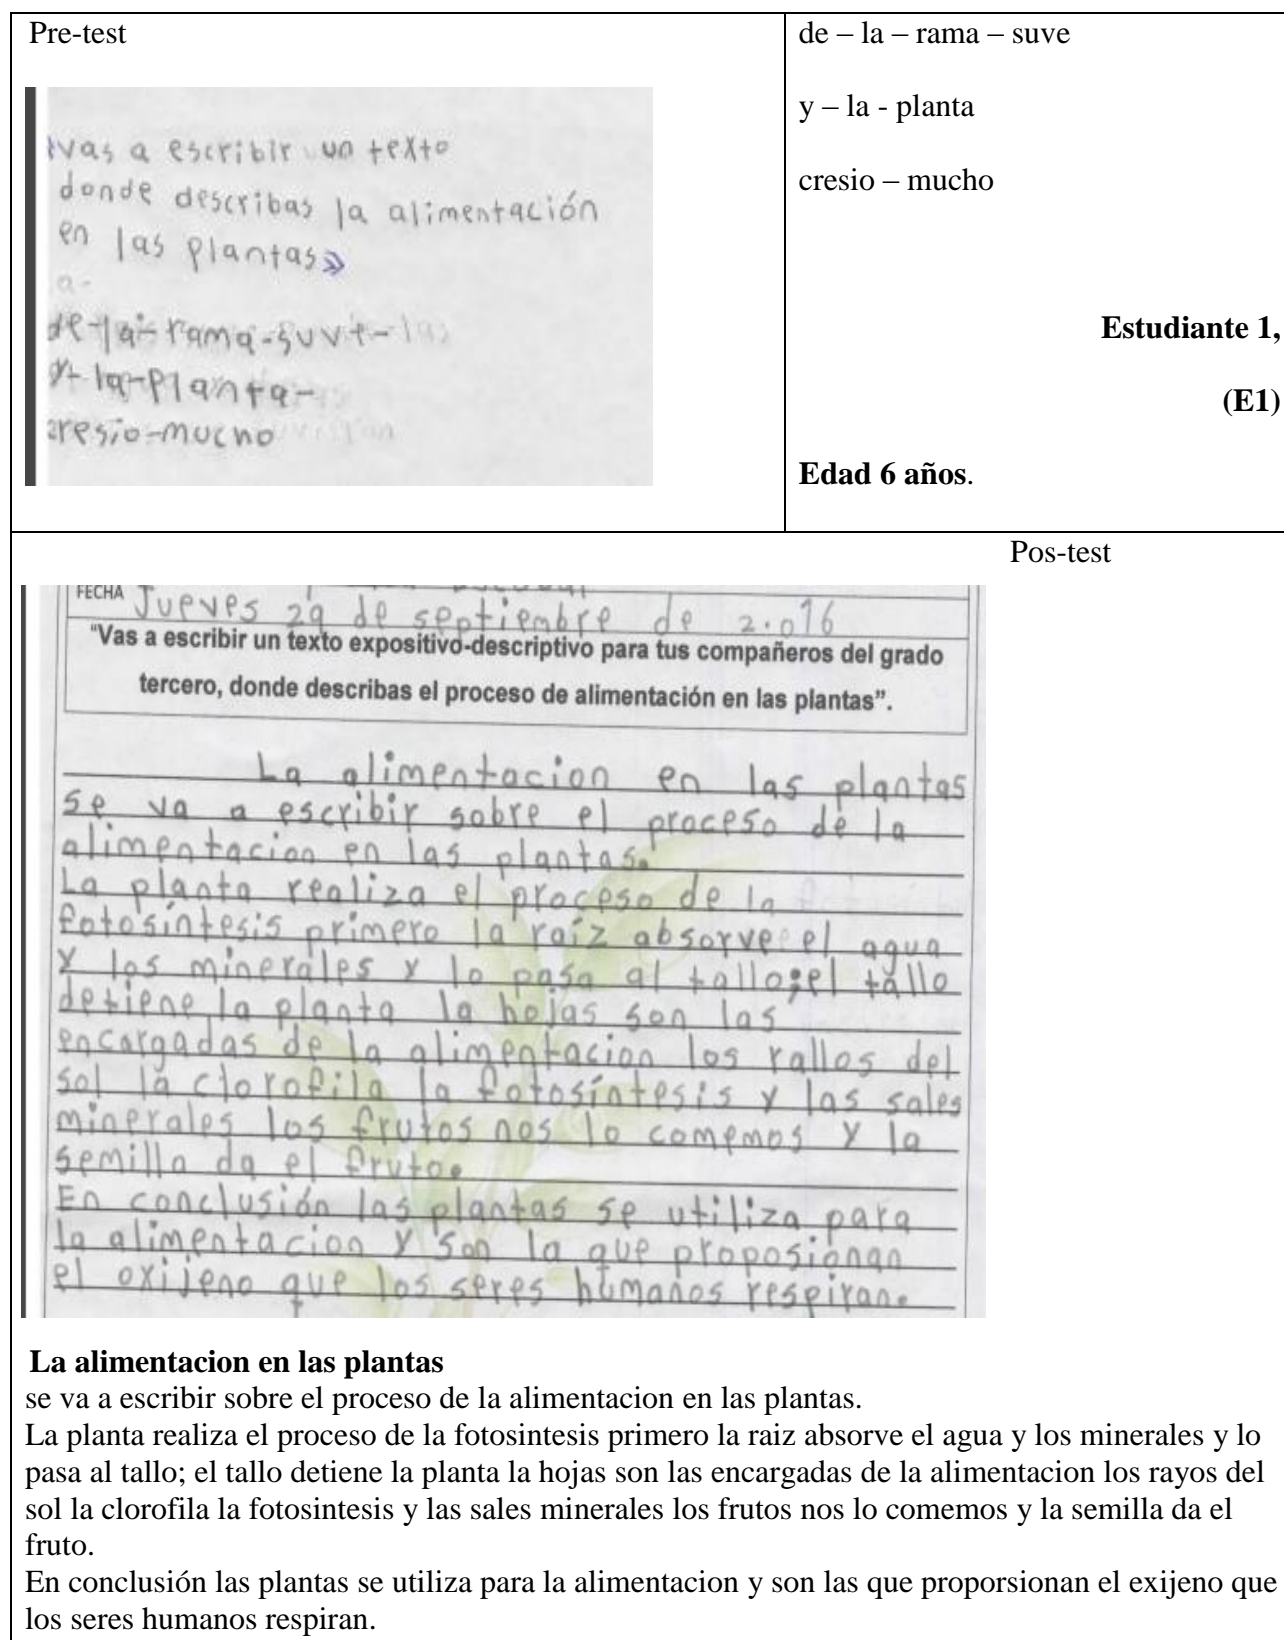 Pre-test
vas a escribir un texto
donde describas la alimentación
en las plantas»
a-
de-la-rama-suve-las
y-la-planta-
cresio-mucho
de – la – rama – suve
y – la - planta
cresio – mucho
Estudiante 1,
(E1)
Edad 6 años.
Pos-test
FECHA Jueves 29 de septiembre de 2.016
"Vas a escribir un texto expositivo-descriptivo para tus compañeros del grado
tercero, donde describas el proceso de alimentación en las plantas".
La alimentacion en las plantas
se va a escribir sobre el proceso de la
alimentacion en las plantas.
La planta realiza el proceso de la
fotosíntesis primero la raíz absorve el agua
y los minerales y lo pasa al tallo;el tallo
detiene la planta la hojas son las
encargadas de la alimentacion los rallos del
sol la clorofila la fotosíntesis y las sales
minerales los frutos nos lo comemos y la
semilla da el fruto.
En conclusión las plantas se utiliza para
la alimentacion y son la que proposionan
el oxijeno que los seres humanos respiran.
La alimentacion en las plantas
se va a escribir sobre el proceso de la alimentacion en las plantas.
La planta realiza el proceso de la fotosintesis primero la raiz absorve el agua y los minerales y lo
pasa al tallo; el tallo detiene la planta la hojas son las encargadas de la alimentacion los rayos del
sol la clorofila la fotosintesis y las sales minerales los frutos nos lo comemos y la semilla da el
fruto.
En conclusión las plantas se utiliza para la alimentacion y son las que proporsionan el exijeno que
los seres humanos respiran.